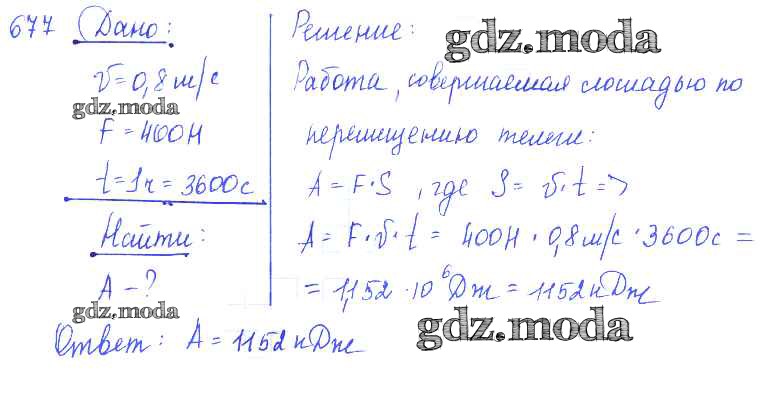 677 Дано:
υ = 0,8 м/с
gdz.moda
F = 400 Н
t = 1 ч = 3600 с
Найти:
A - ?
gdz.moda
Решение:
gdz.moda
Работа, совершаемая лошадью по
перемещению телеги:
A = F·S, где S = υ·t =>
A = F·υ·t = 400 Н · 0,8 м/с · 3600 с =
= 1,152 · 10⁶ Дж = 1152 кДж
gdz.moda
Ответ: A = 1152 кДж